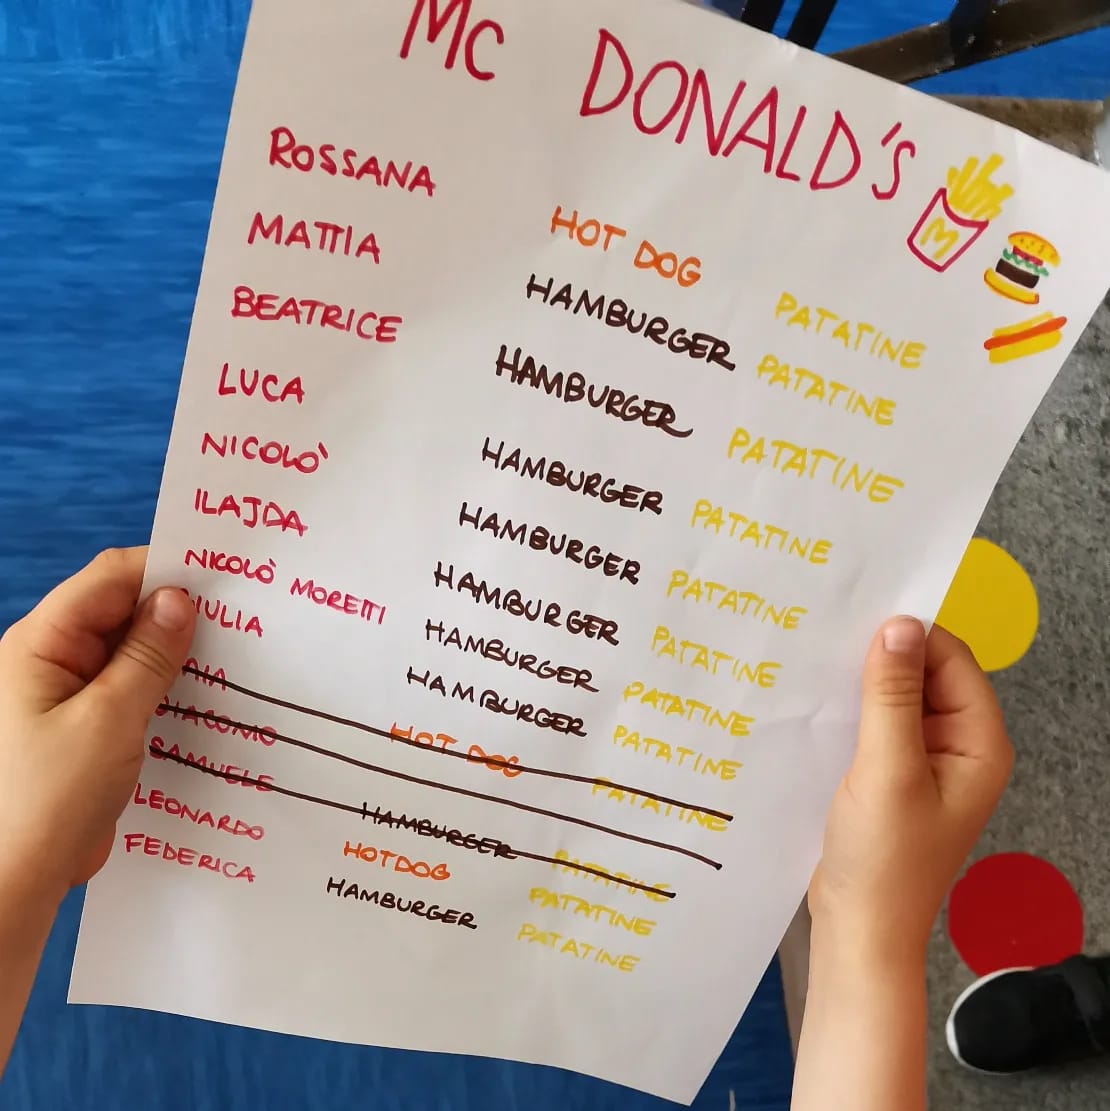 Mc DONALD'S
M
ROSSANA HOT DOG PATATINE
MATTIA HAMBURGER PATATINE
BEATRICE HAMBURGER PATATINE
LUCA HAMBURGER PATATINE
NICOLÒ HAMBURGER PATATINE
ILAJDA HAMBURGER PATATINE
NICOLÒ MORETTI HAMBURGER PATATINE
GIULIA HAMBURGER PATATINE
HOT DOG PATATINE
GIACOMO
SAMUELE HAMBURGER PATATINE
LEONARDO HOTDOG PATATINE
FEDERICA HAMBURGER PATATINE